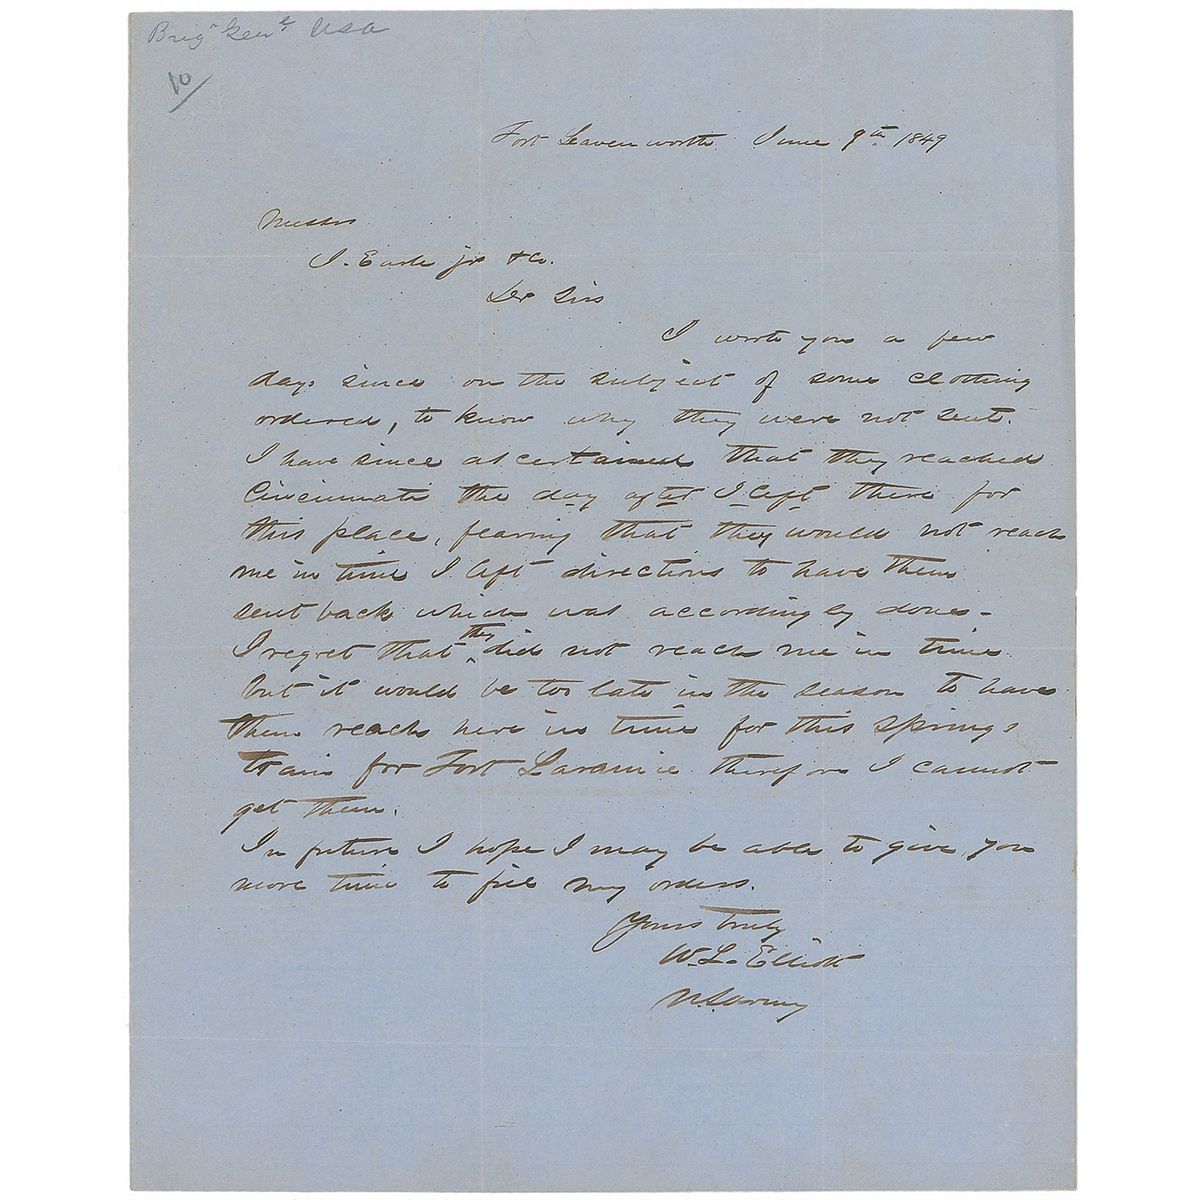 Brigr Genl USA
10/
Fort Leavenworth June 9th 1849
Messrs
J. Earle jr & Co.
Dr Sirs
I wrote you a few
days since on the subject of some clothing
ordered, to know why they were not sent.
I have since ascertained that they reached
Cincinnati the day after I left there for
this place, fearing that they would not reach
me in time I left directions to have them
sent back which was accordingly done -
I regret that they did not reach me in time
but it would be too late in the season to have
them reach here in time for this springs
train for Fort Laramie therefore I cannot
get them.
In future I hope I may be able to give you
more time to fill my orders.
Yours truly
W. L. Elliott
U.S. Army